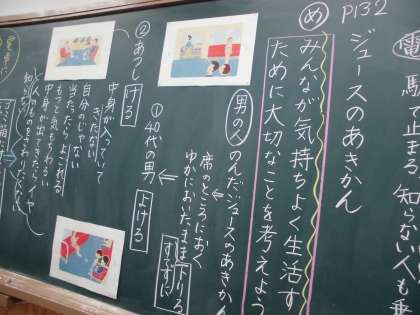 P132
電
駅で止まる。知らない人も乗
ジュースのあきかん
め
みんなが気持ちよく生活す
ために大切なことを考えよう
男の人
のんだジュースのあきかん
席のところにおく
ゆかにおいたまま下りる
すてずに
①40代の男
よける
②あつし
ける
中身が入ってて
きたない
自分のじゃない
当たったらよごれる。
もっと気もちわるい
中身が出てきたらイヤ
人のものをさわりたくない
知らない
ゴミ箱